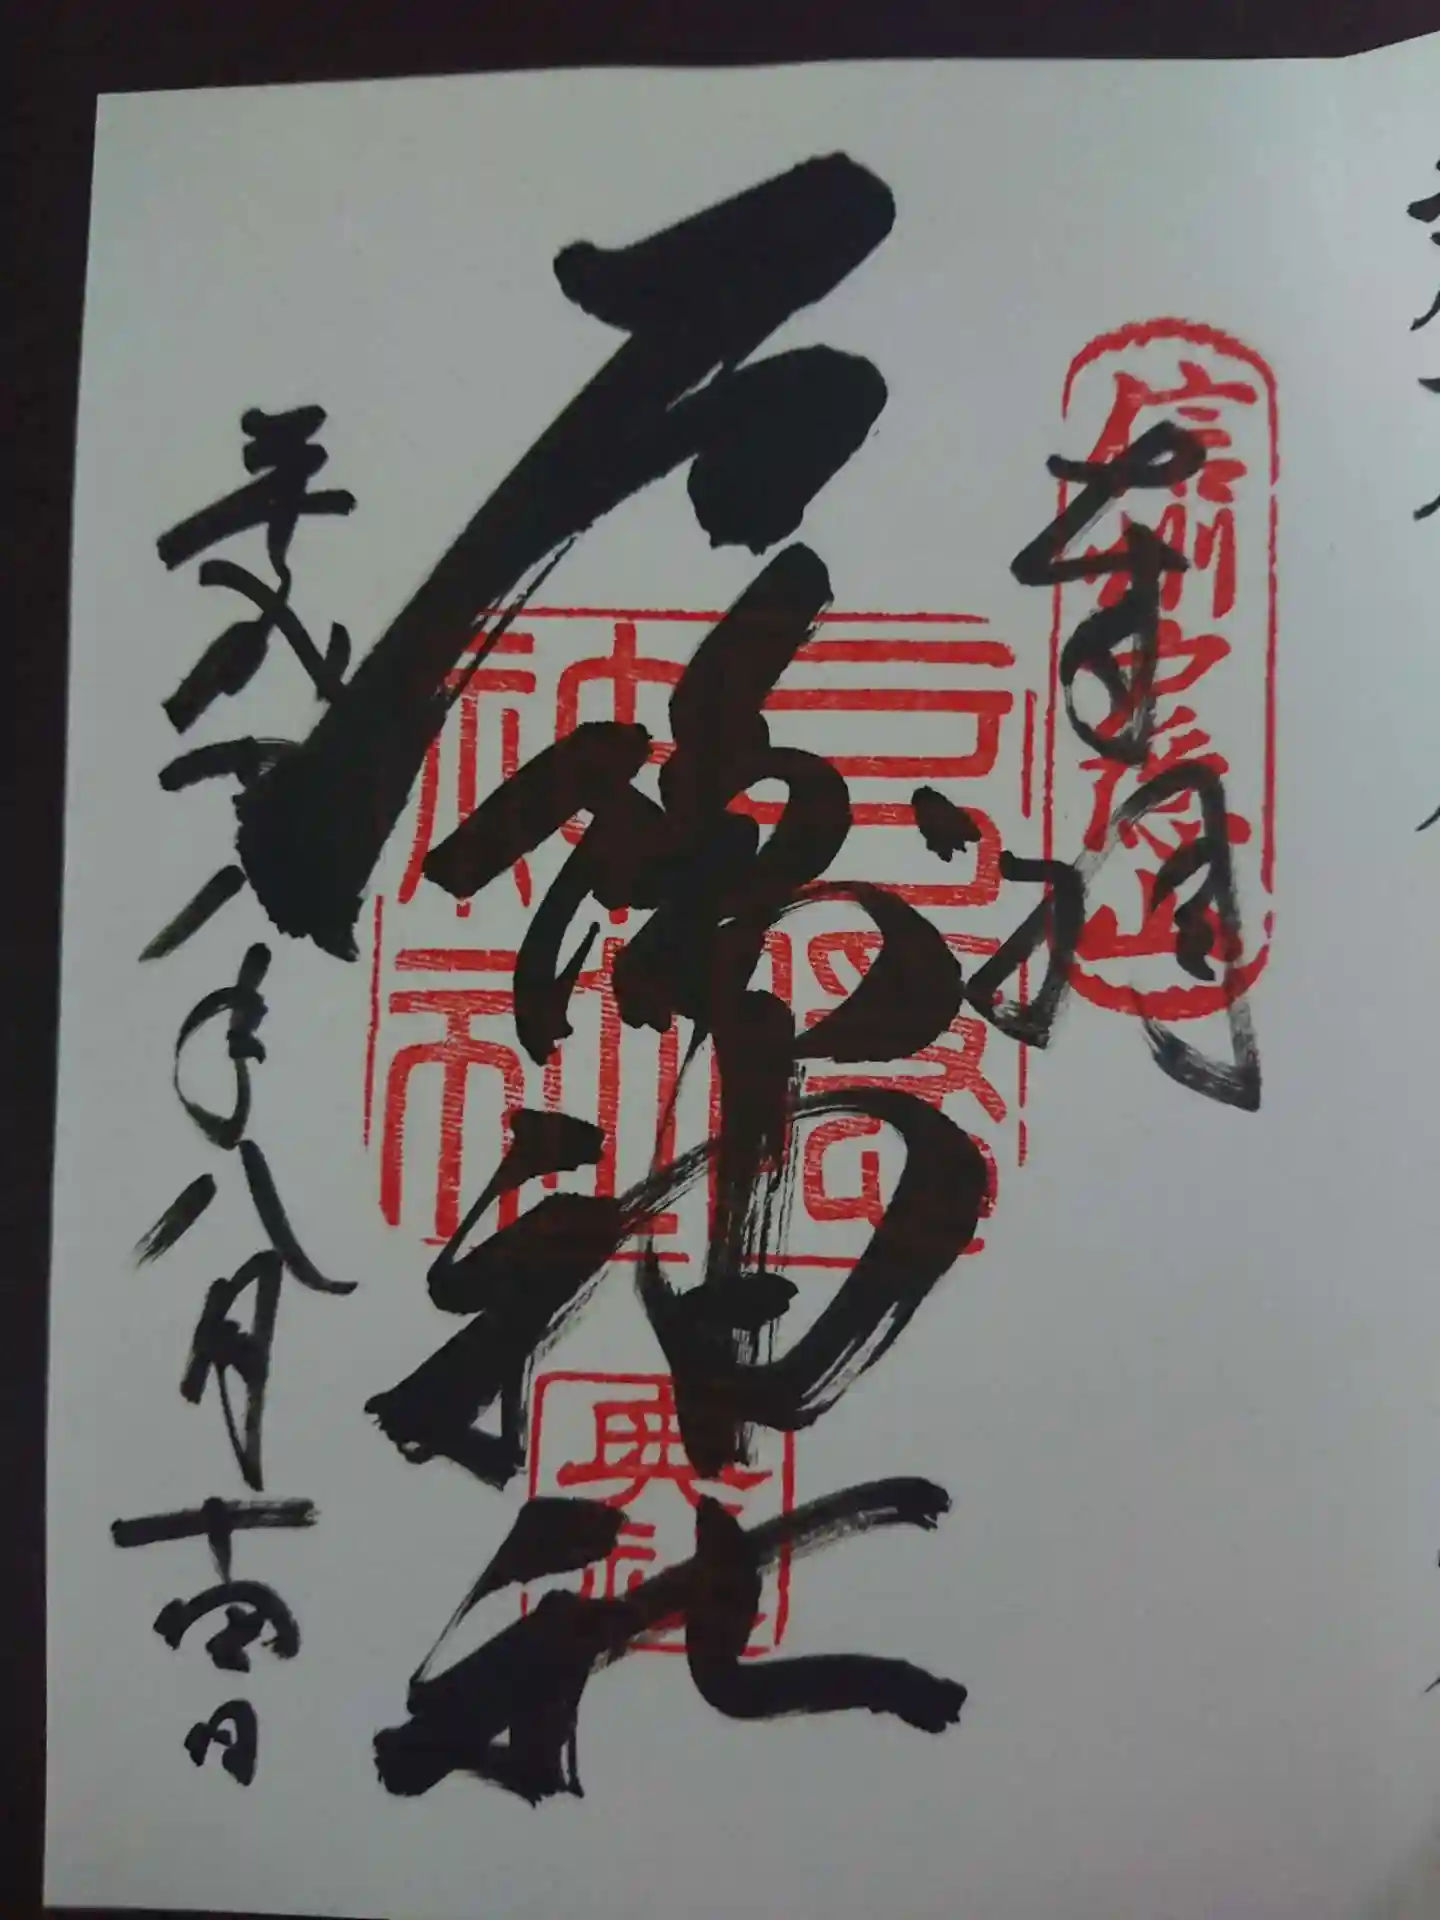 信州戸隠山
奉拝
戸隠神社
戸隠神社
奥社
平成 年八月十 日